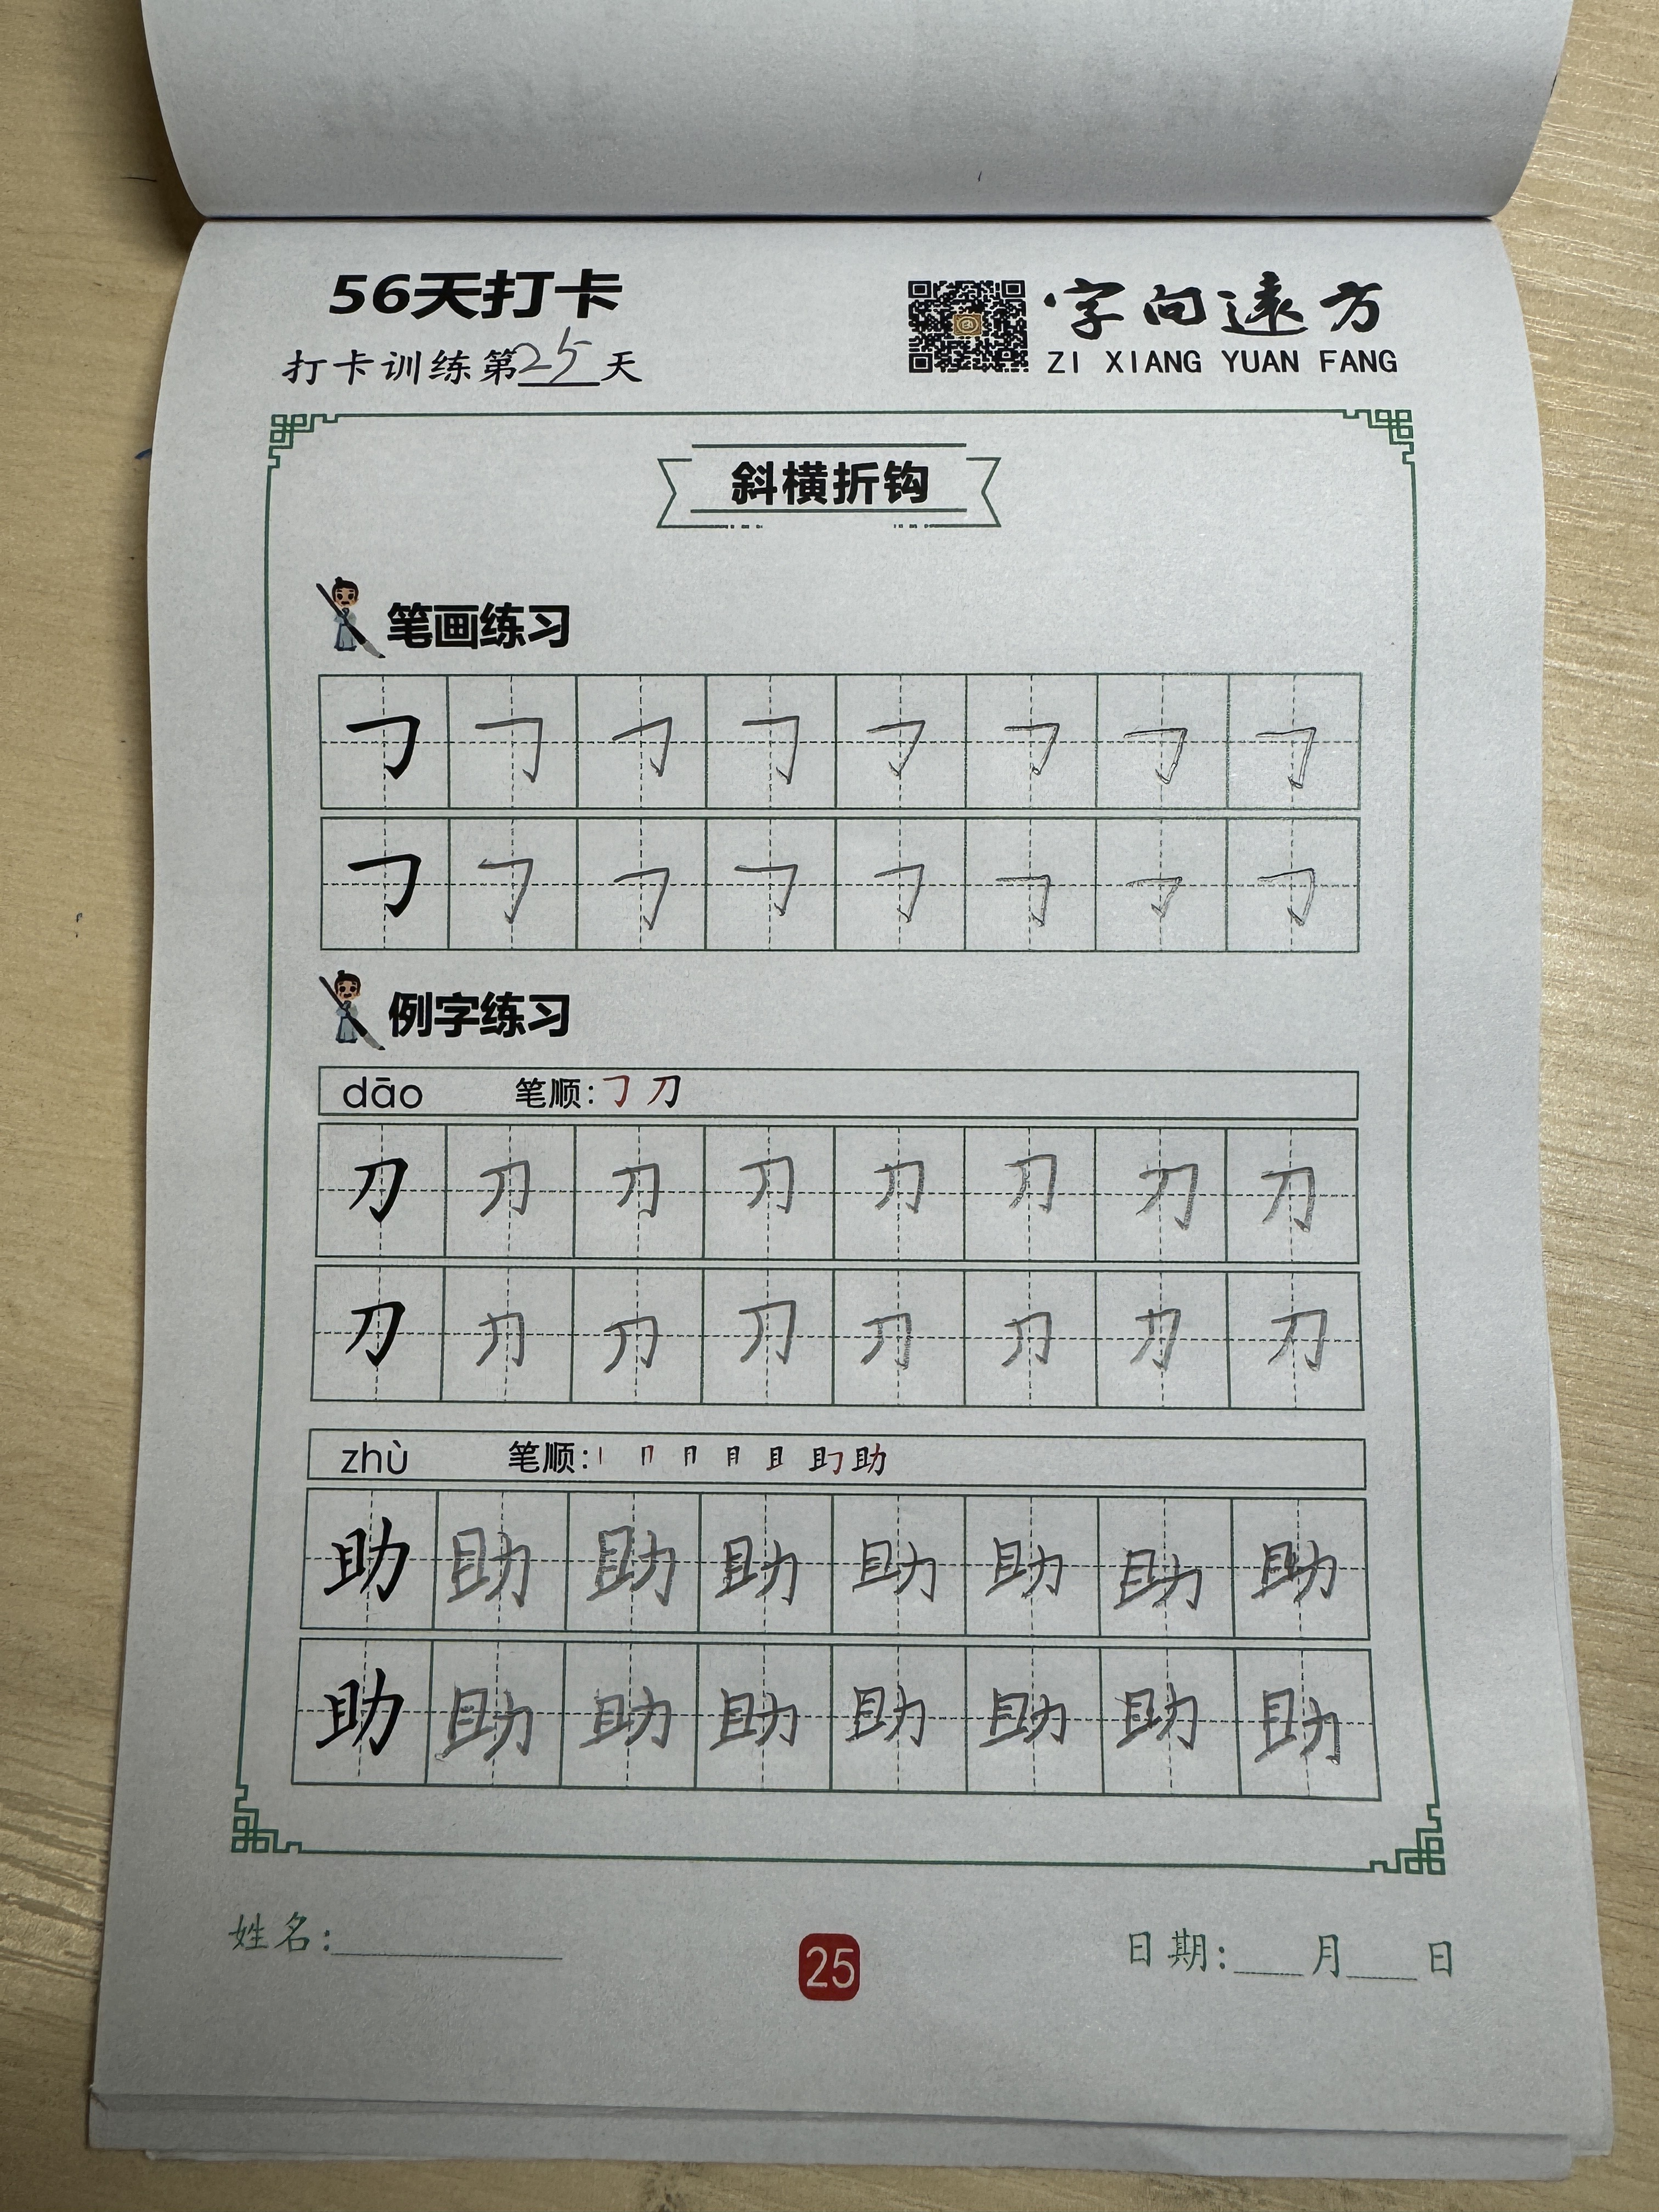 56天打卡
字向远方
打卡训练第25天
ZI XIANG YUAN FANG
斜横折钩
笔画练习
𠃌 𠃌 𠃌 𠃌 𠃌 𠃌 𠃌 𠃌
𠃌 𠃌 𠃌 𠃌 𠃌 𠃌 𠃌 𠃌
例字练习
dāo 笔顺: 𠃌 刀
刀 刀 刀 刀 刀 刀 刀 刀
刀 刀 刀 刀 刀 刀 刀 刀
zhù 笔顺:
助 助 助 助 助 助 助 助
助 助 助 助 助 助 助 助
姓名:
25
日期:___月___日